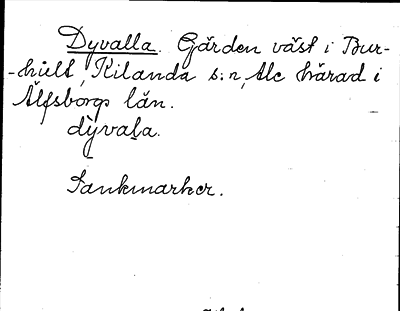 Dyvalla. Gården väst i Bur-
-hult, Kilanda s:n, Ale härad i
Älfsborgs län.
dỳvala.
Sankmarker.